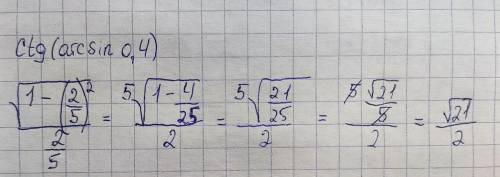 ctg(arcsin 0,4)
√(1-(2/5)²) / (2/5) = 5√(1-4/25) / 2 = 5√(21/25) / 2 = 5 √21/5 / 2 = √21/2